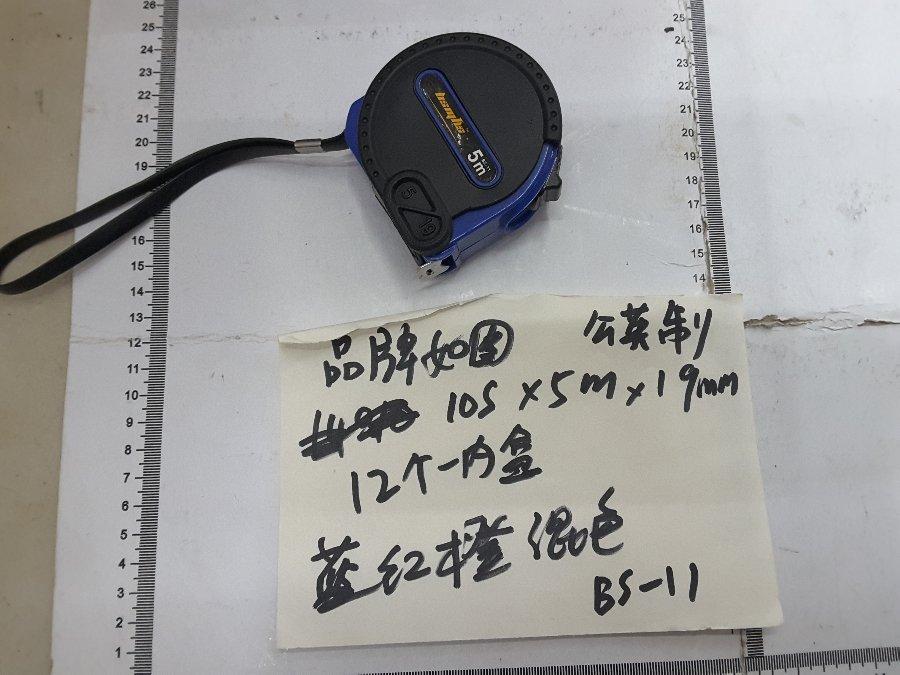 5m
5
19
品牌如图 公英制
10S×5m×19mm
12个一内盒
蓝红橙混色
BS-11
26
25
24
23
22
21
20
19
18
17
16
15
14
13
12
11
10
9
8
7
6
5
4
3
2
1
25
24
23
22
21
20
19
18
17
16
15
14